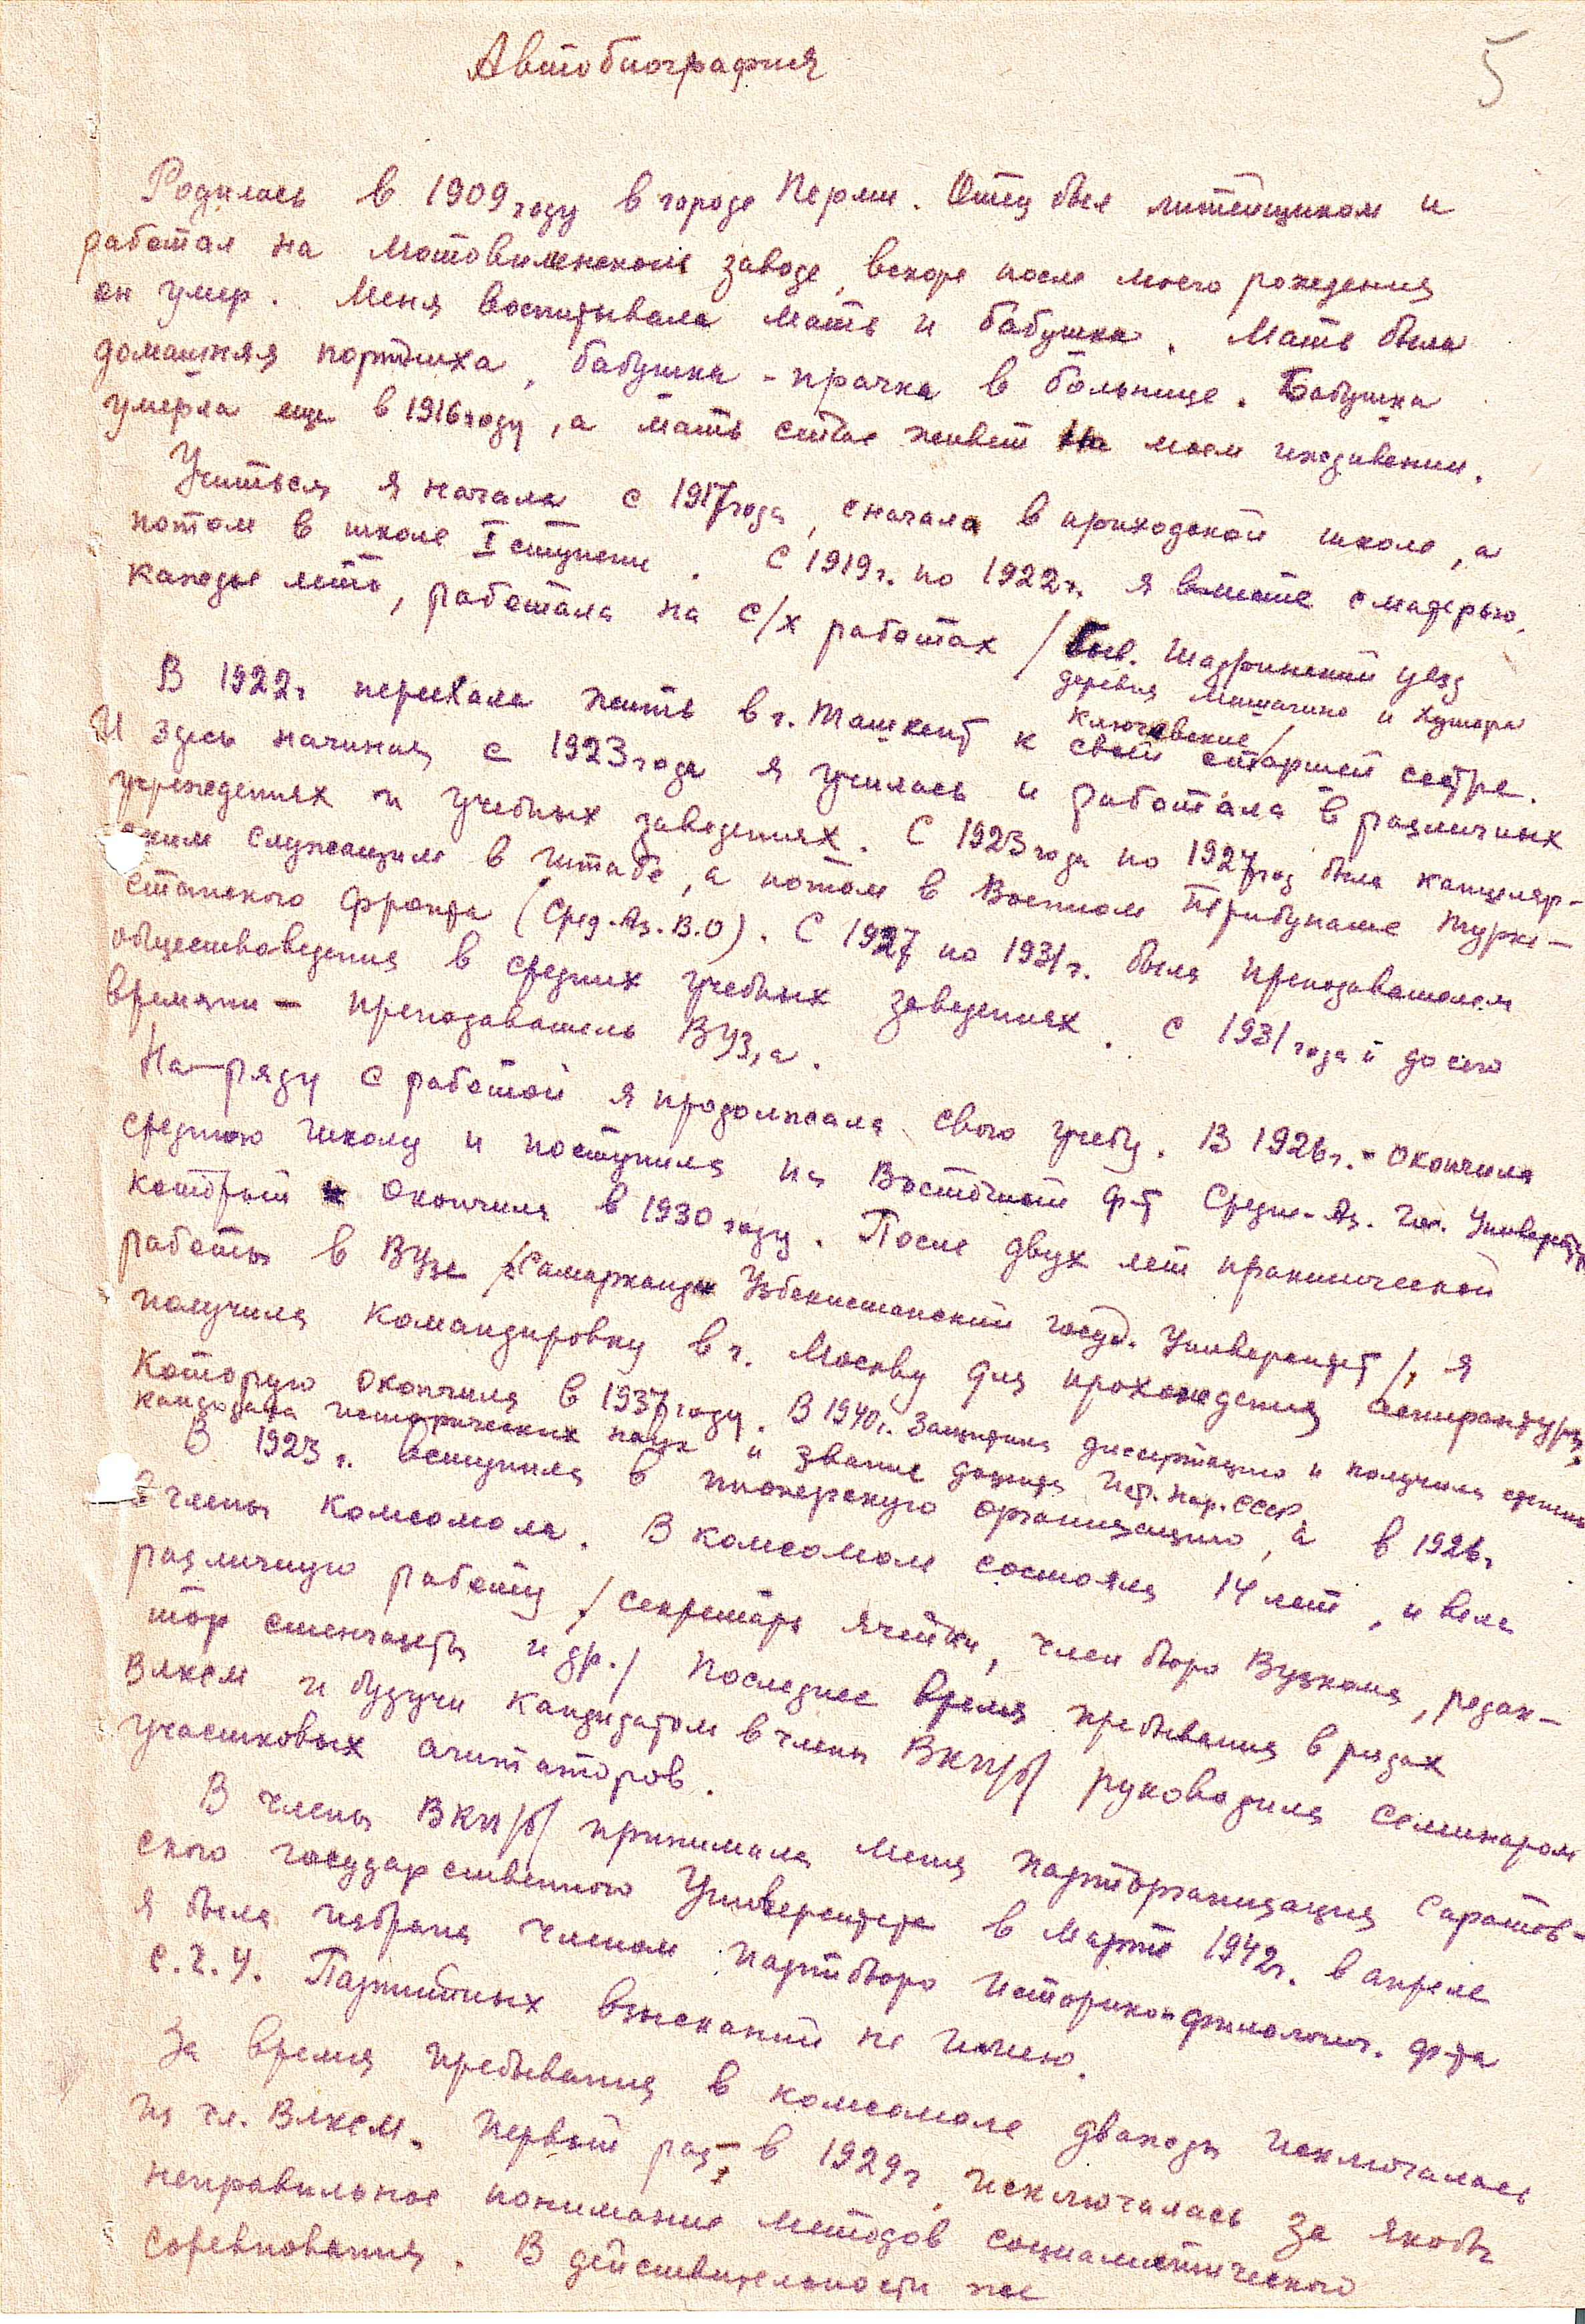 Автобиография
5
Родилась в 1909 году в городе Перми. Отец был литейщиком и
работал на Мотовилинском заводе, вскоре после моего рождения
он умер. Меня воспитывала мать и бабушка. Мать была
домашняя портниха, бабушка - прачка в больнице. Бабушка
умерла еще в 1916 году, а мать сейчас живет на моем иждивении.
Учиться я начала с 1917 года, сначала в приходской школе, а
потом в школе I ступени. С 1919 г. по 1922 г. я вместе с матерью,
каждое лето, работала на с/х работах / быв. Шадринский уезд
деревня Мишагино и хутора
Ключевские /
В 1922 г. переехала жить в г. Ташкент к своей старшей сестре.
И здесь начиная с 1923 года я училась и работала в различных
учреждениях и учебных заведениях. С 1923 года по 1927 год была канцеляр-
ским служащим в штабе, а потом в Военном Трибунале Турке-
станского фронта (Сред.-Аз. В.О). С 1927 по 1931 г. была преподавателем
обществоведения в средних учебных заведениях. С 1931 года и до сего
времени - преподаватель ВУЗ,а.
На-ряду с работой я продолжала свою учебу. В 1926 г. - окончила
среднюю школу и поступила на Восточный ф-т Средне-Аз. Гос. Университета
который окончила в 1930 году. После двух лет практической
работы в ВУЗе /Самарканд Узбекистанский госуд. Университет/, я
получила командировку в г. Москву для прохождения аспирантуры,
которую окончила в 1937 году. В 1940 г. защитила диссертацию и получила степень
кандидата исторических наук и звание доцента Ист. нар. СССР
В 1923 г. вступила в пионерскую организацию, а в 1926 г
в члены комсомола. В комсомоле состояла 14 лет, и вела
различную работу / секретарь ячейки, член бюро Вузкома, редак-
тор стенгазеты и др./ Последнее время пребывания в рядах
ВЛКСМ и будучи кандидатом в члены ВКП/б/ руководила семинаром
участковых агитаторов.
В члены ВКП/б/ принимала меня парторганизация Саратов-
ского государственного Университета в марте 1942 г. в апреле
я была избрана членом партбюро Историкофилологич. ф-та
С.Г.У. Партийных взысканий не имею.
За время пребывания в комсомоле дважды исключалась
из чл. ВЛКСМ. Первый раз, в 1929 г, исключалась за якобы
неправильное понимание методов социалистического
соревнования. В действительности же